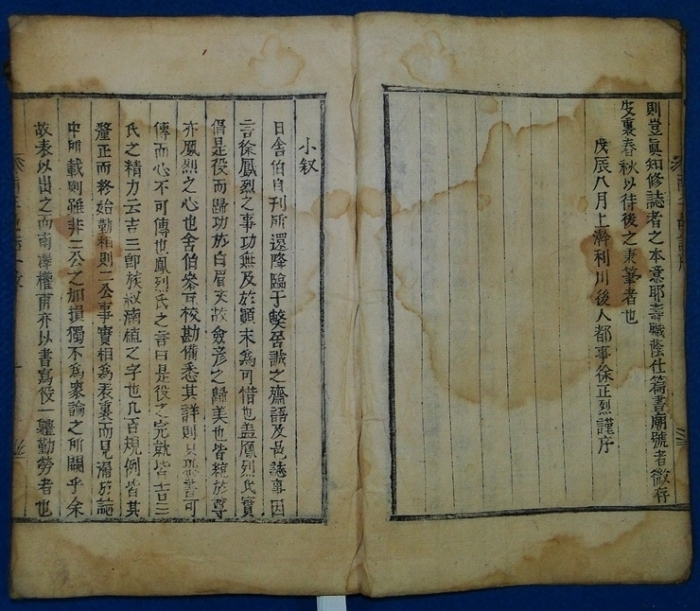 則豈眞知修誌者之本意耶壽職蔭仕篇書廟號者微存
皮裏春秋以待後之秉筆者也
戊辰八月上澣利川後人都事徐正烈謹序
小敘
日舍伯自刊所還降臨于晉誠之齋語及邑誌事因
言徐鳳烈之事功無及於顚末爲可惜也盖鳳烈氏實
倡是役而歸功於白眉矣故僉彦之歸美也皆統於尊
亦鳳烈之心也舍伯參互校勘備悉其詳則只恐書可
傳而心不可傳也鳳烈氏之言曰是役之完就皆吉三
氏之精力云吉三卽族叔植之字也凡百規例皆其
釐正而終始勤相則二公事實相爲表裏而見漏於誌
中所載則雖非二公之加損獨不爲衆論之所闕乎余
故表以出之而南澤權甫亦以書寫役一軆勤勞者也